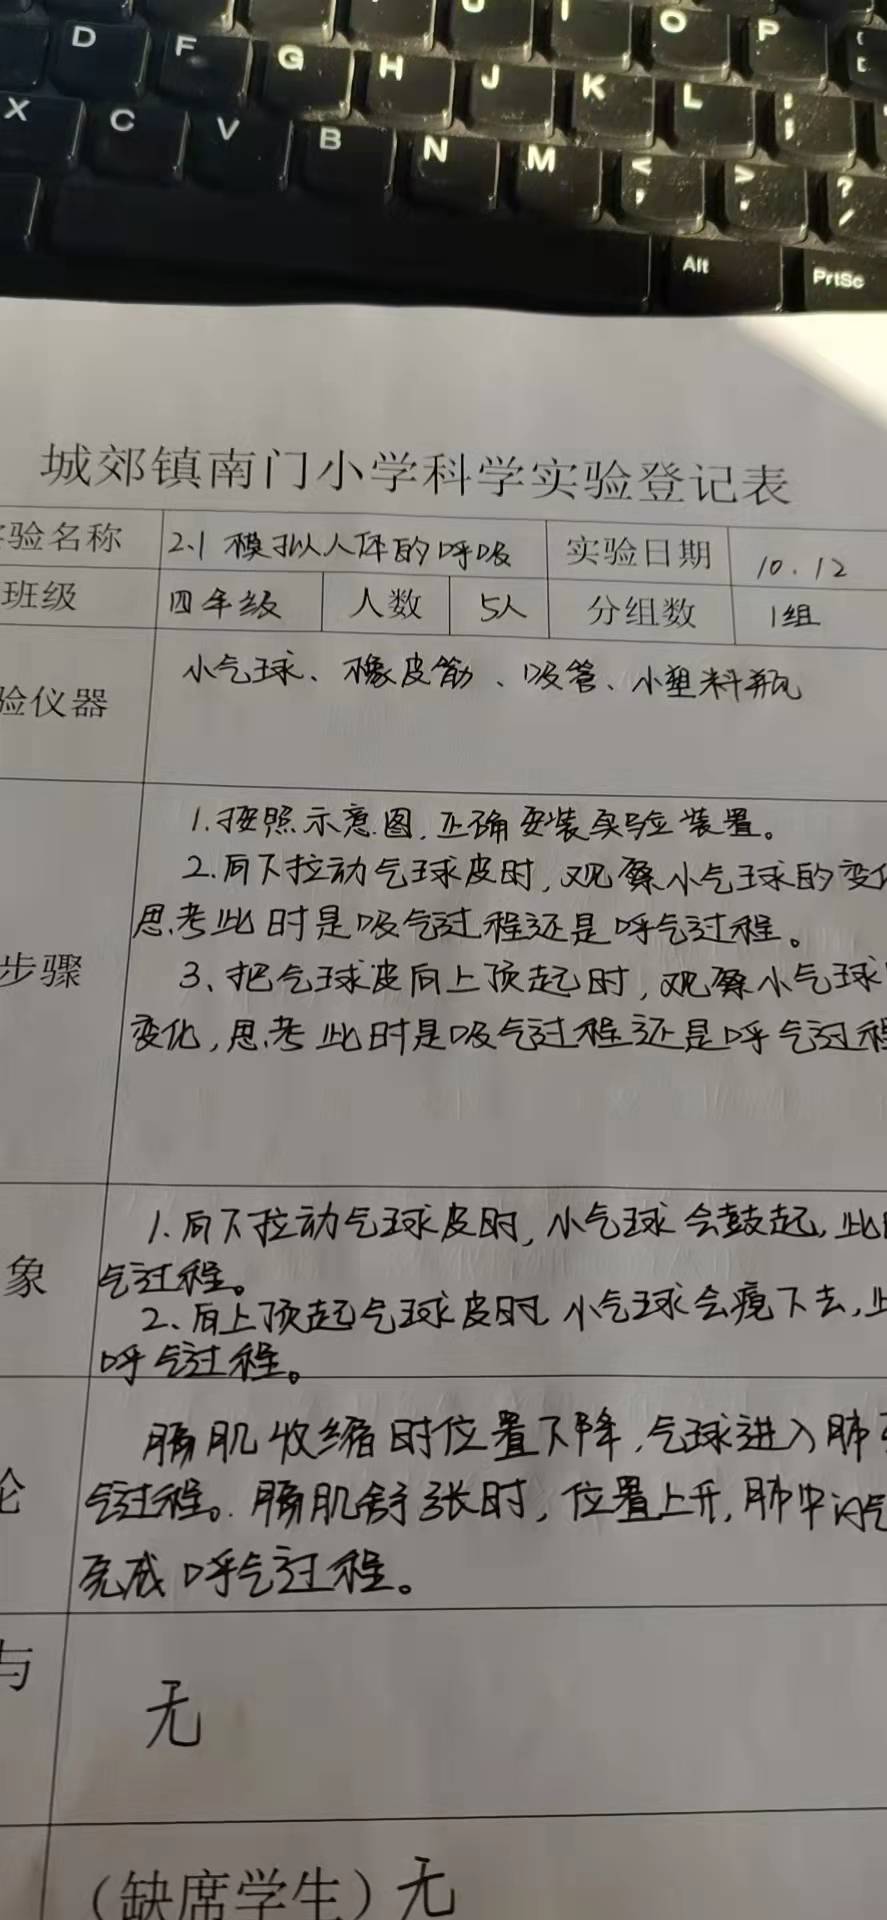 U I O P
D F G H J K L : ;
X C V B N M < , > . ? /
Alt PrtSc
城郊镇南门小学科学实验登记表
验名称 2.1 模拟人体的呼吸 实验日期 10.12
班级 四年级 人数 5人 分组数 1组
验仪器 小气球、橡皮筋、吸管、小塑料瓶
1.按照示意图,正确安装实验装置。
2.向下拉动气球皮时,观察小气球的变
思考此时是吸气过程还是呼气过程。
步骤
3、把气球皮向上顶起时,观察小气球
变化,思考此时是吸气过程还是呼气过程
1.向下拉动气球皮时,小气球会鼓起,此
象 气过程。
2、向上顶起气球皮时,小气球会瘪下去,
呼气过程。
膈肌收缩时位置下降,气球进入肺
论 气过程。膈肌舒张时,位置上升,肺中
完成呼气过程。
与
无
(缺席学生)无